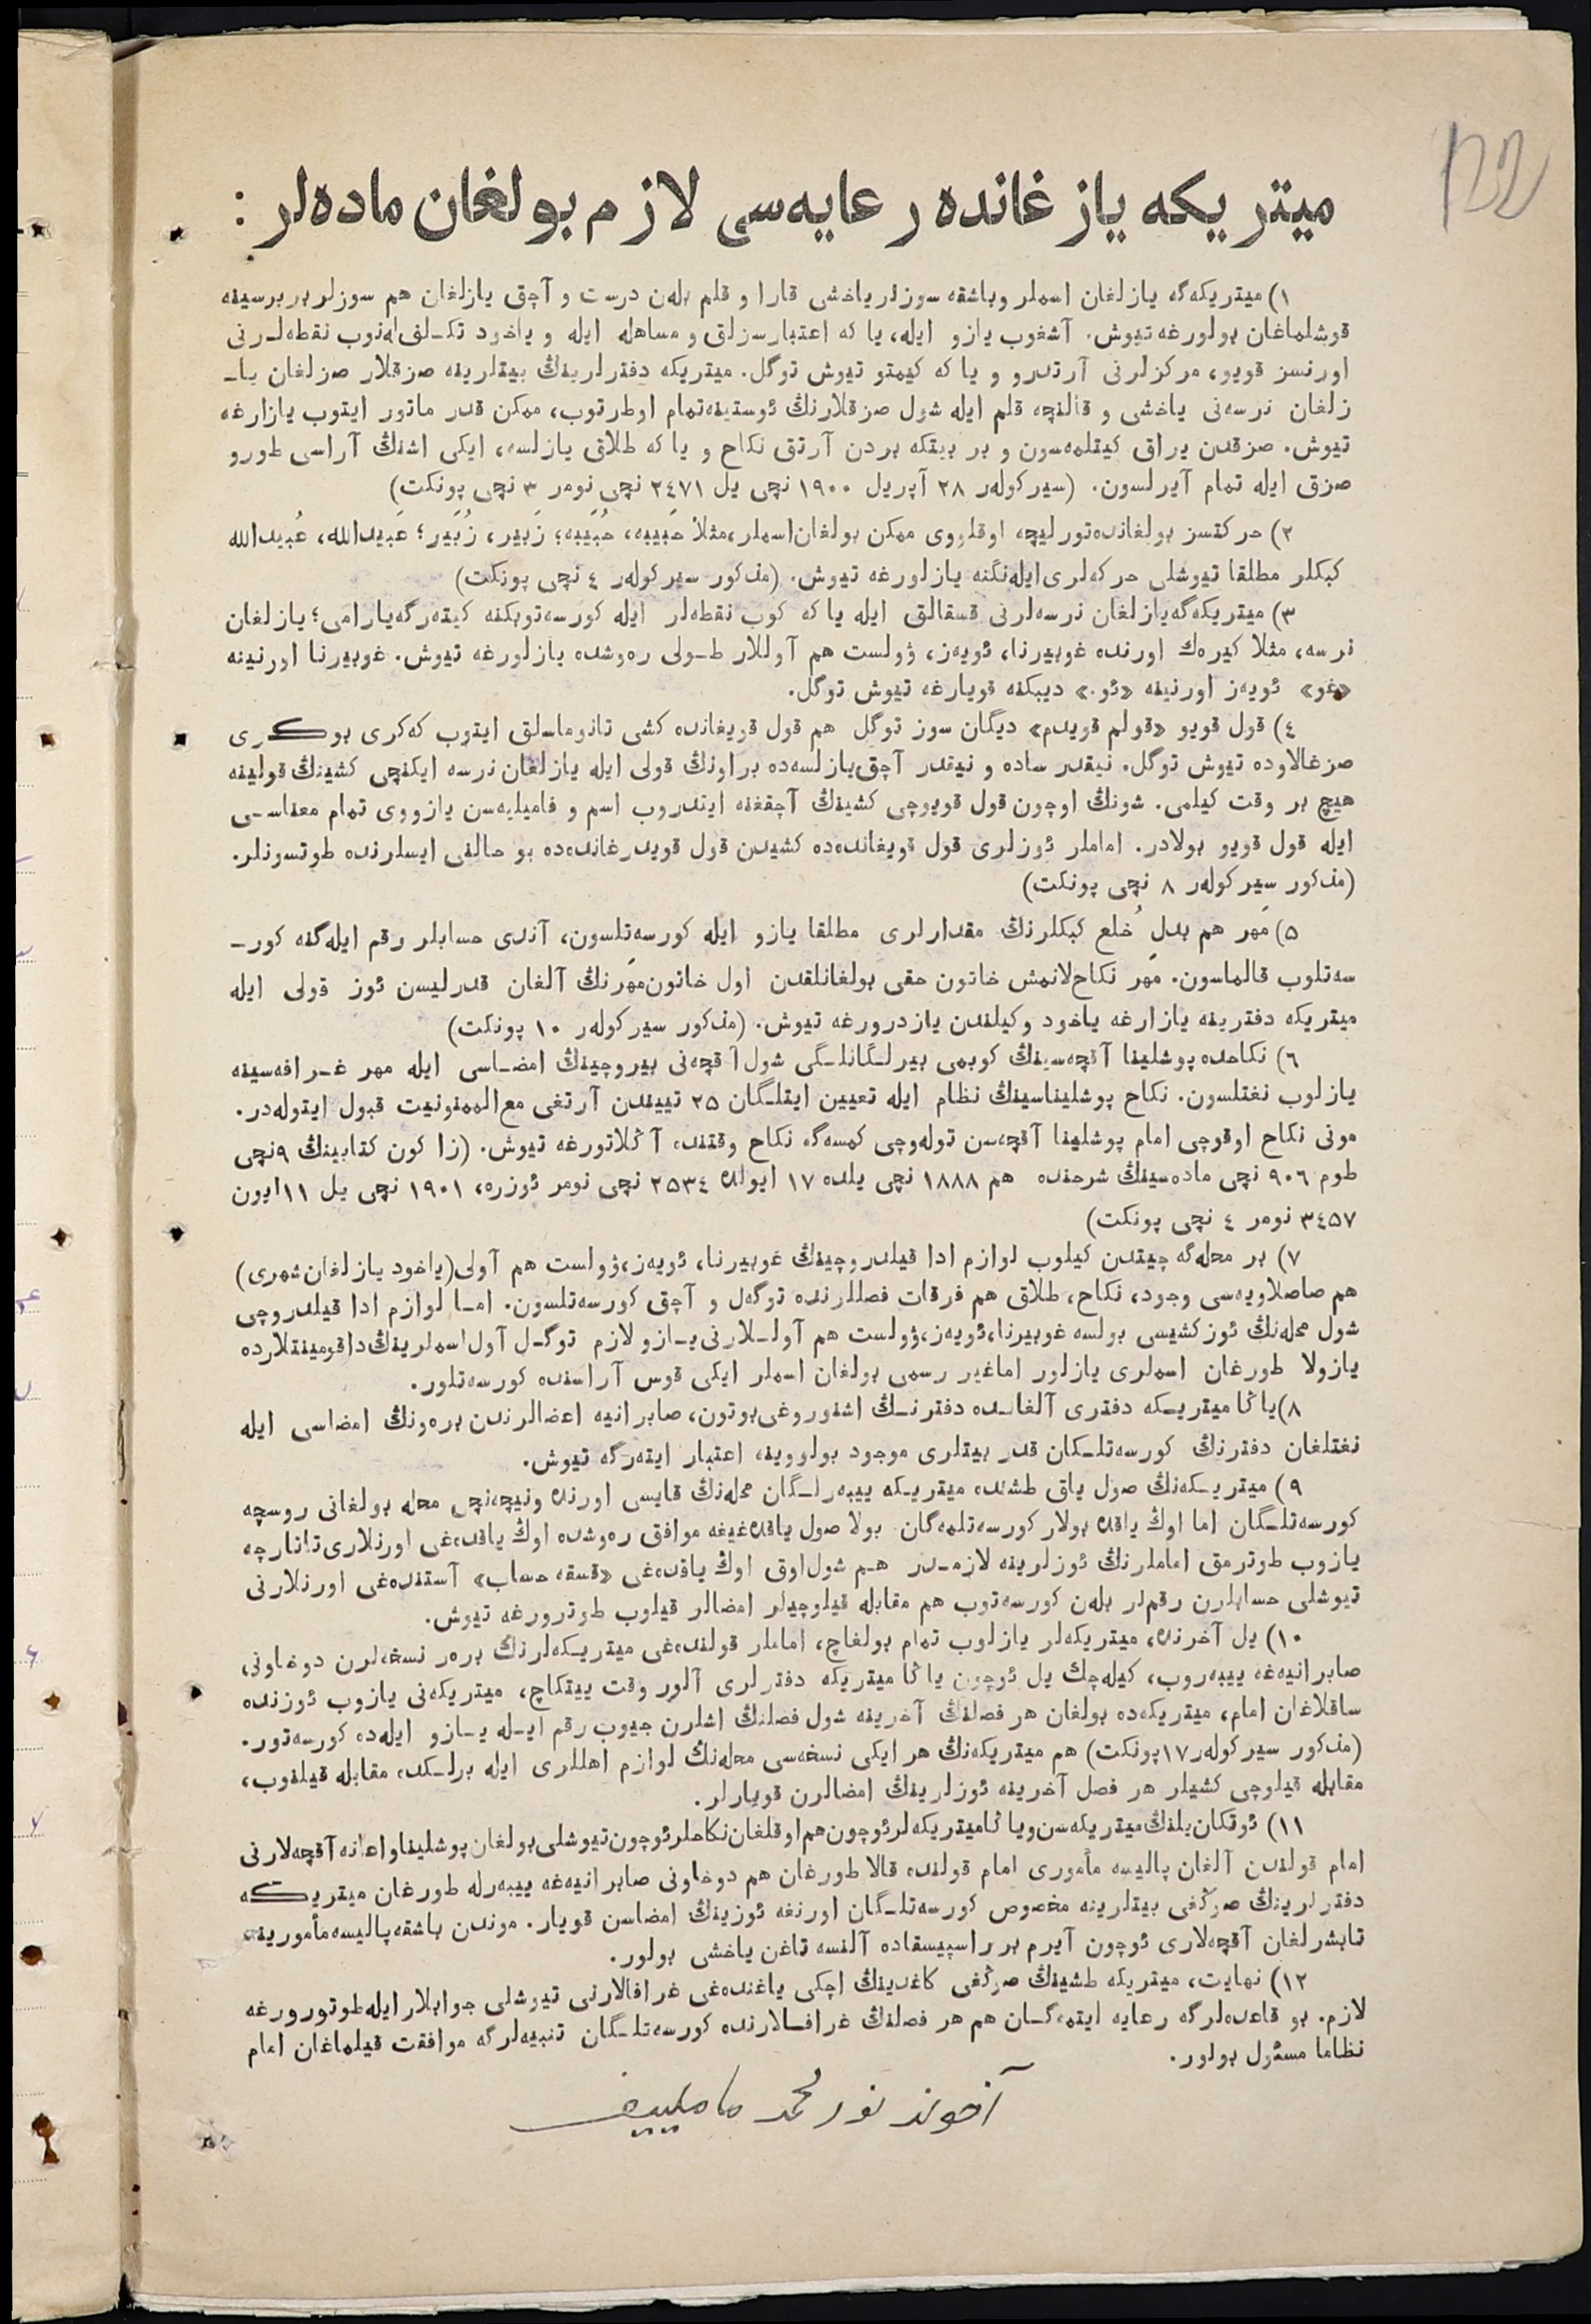 122
میتریكه یازغانده رعایه‌سی لازم بولغان ماده‌لر :
۱) میتریكه‌گه یازلغان اسملر وباشقه سوزلر یاخشی قارا و قلم بله‌ن درست و آچق یازلغان هم سوزلر بربرسینه
قوشلماغان بولورغه تیوش. آشغوب یازو ایله، یا كه اعتبارسزلق و مساهله ایله و یاخود تكـلف‌له‌نوب نقطه‌لـرنی
اورنسز قویو، مركزلرنی آرتدرو و یا كه كیمتو تیوش توگل. میتریكه دفترلرینڭ بیتلرینه صزقلار صزلغان یاـ
زلغان نرسه‌نی یاخشی و قالنچه قلم ایله شول صزقلارنڭ ئوستینه‌تمام اوطرتوب، ممكن قدر ماتور ایتوب یازارغه
تیوش. صزقدن یراق كیتلمه‌سون و بر بیتكه بردن آرتق نكاح و یا كه طلاق یازلسه، ایكی اشنڭ آراسی طورو
صزق ایله تمام آیرلسون. (سیركوله‌ر ۲۸ آپریل ۱۹۰۰ نچی یل ۲٤۷۱ نچی نومر ۳ نچی پونكت)
۲) حركتسز بولغانده‌تورلیچه اوقلووی ممكن بولغان‌اسملر،مثلا حَبیبه، حُبَیبه؛ زَبیر، زُبَیر؛ عَبیدالله، عُبیدالله
كبكلر مطلقا تیوشلی حركه‌لری‌ایله‌نگنه یازلورغه تیوش. (مذكور سیركوله‌ر ٤ نچی پونكت)
۳) میتریكه‌گه‌یازلغان نرسه‌لرنی قسقالق ایله یا كه كوب نقطه‌لر ایله كورسه‌توبكنه كیته‌رگه‌یارامی؛ یازلغان
نرسه، مثلا كیره‌ك اورنده غوبیرنا، ئویه‌ز، ۋولست هم آوللار طـولی ره‌وشده یازلورغه تیوش. غوبیرنا اورنینه
«غو» ئویه‌ز اورنینه «ئو.» دیبكنه قویارغه تیوش توگل.
٤) قول قویو «قولم قویدم» دیگان سوز توگل هم قول قویغانده كشی تانوماسلق ایتوب كه‌كری بوكـری
صزغالاوده تیوش توگل. نیقدر ساده و نیقدر آچق‌یازلسه‌ده براونڭ قولی ایله یازلغان نرسه ایكنچی كشینڭ قولینه
هیچ بر وقت كیلمی. شونڭ اوچون قول قویوچی كشینڭ آچقغنه ایتدروب اسم و فامیلیه‌سن یازووی تمام معناسـی
ایله قول قویو بولادر. اماملر ئوزلری قول قویغانده‌ده كشیدن قول قویدرغانده‌ده بو حالنی ایسلرنده طوتسونلر.
(مذكور سیركوله‌ر ۸ نچی پونكت)
۵) مَهر هم بدلِ خُلع كبكلرنڭ مقدارلری مطلقا یازو ایله كورسه‌تلسون، آندی حسابلر رقم ایله‌گنه كورـ
سه‌تلوب قالماسون. مَهر نكاح‌لانمش خاتون حقی بولغانلقدن اول خاتون‌مهرنڭ آلغان قدرلیسن ئوز قولی ایله
میتریكه دفترینه یازارغه یاخود وكیلندن یازدرورغه تیوش. (مذكور سیركوله‌ر ۱۰ پونكت)
٦) نكاحده پوشلینا آقچه‌سینڭ كوبمی بیرلـگانلـگی شول آقچه‌نی بیروچینڭ امضـاسی ایله مهر غـرافه‌سینه
یازلوب نغتلسون. نكاح پوشلیناسینڭ نظام ایله تعیین ایتلـگان ۲۵ تیيندن آرتغی مع‌الممنونیت قبول ایتوله‌در.
مونی نكاح اوقوچی امام پوشلینا آقچه‌سن توله‌وچی كمسه‌گه نكاح وقتنده آڭلاتورغه تیوش. (زاكون كتابینڭ ۹نچی
طوم ۹۰٦ نچی ماده‌سینڭ شرحنده هم ۱۸۸۸ نچی یلده ۱۷ ایولده ۲۵۳٤ نچی نومر ئوزره، ۱۹۰۱ نچی یل ۱۱ایون
۳٤۵۷ نومر ٤ نچی پونكت)
۷) بر محله‌گه چیتدن كیلوب لوازم ادا قیلدروچینڭ غوبیرنا، ئویه‌ز،ۋولست هم آولی(یاخود یازلغان‌شهری)
هم صاصلاویه‌سی وجود، نكاح، طلاق هم فرقات فصللرنده توگه‌ل و آچق كورسه‌تلسون. امـا لوازم ادا قیلدروچی
شول محله‌نڭ ئوزكشیسی بولسه غوبیرنا،ئویه‌ز،ۋولست هم آولـلارنی یـازو لازم توگـل آول‌اسملرینڭ‌داقومینتلارده
یازولا طورغان اسملری یازلور اماغیر رسمی بولغان اسملر ایكی قوس آراسنده كورسه‌تلور.
۸)یاڭا میتریـكه دفتری آلغانـده دفترنـڭ اشنوروغی‌بوتون، صابرانیه اعضالرندن بره‌ونڭ امضاسی ایله
نغتلغان دفترنڭ كورسه‌تلـگان قدر بیتلری موجود بولووینه اعتبار ایته‌رگه تیوش.
۹) میتریـكه‌نڭ صول یاق طشنده میتریـكه ییبه‌رلـگان محله‌نڭ قایسی اورنده ونیچه‌نچی محله بولغانی روسچه
كورسه‌تلـگان اما اوڭ یاقده بولار كورسه‌تلمه‌گان. بولا صول یاقده‌غیغه موافق ره‌وشده اوڭ یاقده‌غی اورنلاری‌تاتارچه
یازوب طوترمق اماملرنڭ ئوزلرینه لازمـدر هـم شول‌اوق اوڭ یاقده‌غی «قسقه حساب» آستنده‌غی اورنلارنی
تیوشلی حسابلرن رقملر بله‌ن كورسه‌توب هم مقابله قیلوچیلر امضالر قیلوب طوترورغه تیوش.
۱۰) یل آخرنده، میتریكه‌لر یازلوب تمام بولغاچ، اماملر قولنده‌غی میتریـكه‌لرنڭ بره‌ر نسخه‌لرن دوخاونی
صابرانیه‌غه ییبه‌روب، كیله‌چك یل ئوچون یاڭا میتریكه دفترلری آلور وقت ییتكاچ، میتریكه‌نی یازوب ئوزنده
ساقلاغان امام، میتریكه‌ده بولغان هر فصلنڭ آخرینه شول فصلنڭ اشلرن جیوب رقم ایـله یـازو ایله‌ده كورسه‌تور.
(مذكور سیركوله‌ر۱۷پونكت) هم میتریكه‌نڭ هر ایكی نسخه‌سی محله‌نڭ لوازم اهللری ایله برلـكده مقابله قیلنوب،
مقابله قیلوچی كشیلر هر فصل آخرینه ئوزلرینڭ امضالرن قویارلر.
۱۱) ئوتكان‌یلنڭ‌میتریكه‌سن‌ویاڭامیتریكه‌لرئوچون‌هم‌اوقلغان‌نكاحلرئوچون‌تیوشلی‌بولغان‌پوشلیناواعانه‌آقچه‌لارنی
امام قولندن آلغان پالیسه مأموری امام قولنده قالا طورغان هم دوخاونی صابرانیه‌غه ییبه‌رله طورغان میتریـكه
دفترلرینڭ صوڭغی بیتلرینه مخصوص كورسه‌تلـگان اورنغه ئوزینڭ امضاسن قویار. موندن باشقه‌پالیسه‌مأمورینه
تابشرلغان آقچه‌لاری ئوچون آیرم بر راسپیسقاده آلنسه تاغن یاخشی بولور.
۱۲) نهایت، میتریكه طشینڭ صوڭغی كاغدینڭ اچكی یاغنده‌غی غرافالارنی تیوشلی جوابلار ایله‌طوتورورغه
لازم. بو قاعده‌لرگه رعایه ایتمه‌گـان هم هر فصلنڭ غرافـالارنده كورسه‌تلـگان تنبیه‌لرگه موافقت قیلماغان امام
نظاما مسئول بولور.
آخوند نورمحمد مامليیف